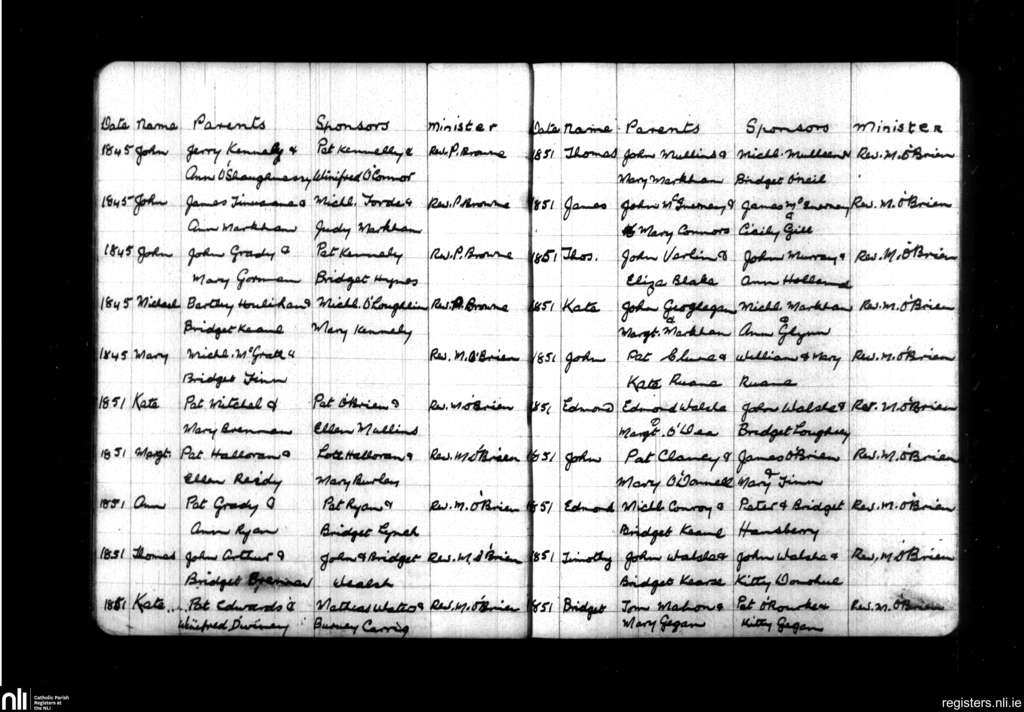 Date Name Parents Sponsors Minister
1845 John Jerry Kennely & Pat Kennelly & Rev. P. Browne
Ann O'Shaughnessy Winifred O'Connor
1845 John James Finucane & Michl. Forde & Rev. P. Browne
Ann Markham Judy Markham
1845 John John Grady & Pat Kennely Rev. P. Browne
Mary Gorman Bridget Hynes
1845 Michael Bartley Houlihan & Michl. O'Loughlin Rev. P. Browne
Bridget Keane Mary Kennely
1845 Mary Michl. McGrath & Rev. M. O'Brien
Bridget Finn
1851 Kate Pat Mitchel & Pat O'Brien & Rev. M. O'Brien
Mary Brennan Ellen Mullins
1851 Margt. Pat Halloran & Halloran & Rev. M. O'Brien
Ellen Reidy Mary Burley
1851 Ann Pat Grady & Pat Ryan & Rev. M. O'Brien
Ann Ryan Bridget Lynch
1851 Thomas John Arthur & John & Bridget Rev. M. O'Brien
Bridget Brennan Wealsh
1851 Kate Pat Edwards & Mathias Waters & Rev. M. O'Brien
Winefred Burney Carrig
Date Name Parents Sponsors Minister
1851 Thomas John Mullins & Michl. Mulleen & Rev. M. O'Brien
Mary Markham Bridget O'Neil
1851 James John McInerney & James McInerney Rev. M. O'Brien
Mary Connors & Cicily Gill
1851 Thos. John Varlin & John Murray & Rev. M. O'Brien
Eliza Blake Ann Holland
1851 Kate John Geoghegan Michl. Markham Rev. M. O'Brien
& Margt. Markham & Ann Glynn
1851 John Pat Clune & William & Mary Rev. M. O'Brien
Kate Ruane Ruane
1851 Edmond Edmond Walshe John Walshe & Rev. M. O'Brien
& Margt. O'Dea Bridget Loughrey
1851 John Pat Clancy & James O'Brien Rev. M. O'Brien
Mary O'Donnell & Mary Finn
1851 Edmond Michl Conroy & Peter & Bridget Rev. M. O'Brien
Bridget Keane Hansbery
1851 Timothy John Walshe & John Walshe & Rev. M. O'Brien
Bridget Kearse Kitty Donohue
1851 Bridget Tom Mahon & Pat O'Rourke & Rev. M. O'Brien
Mary Gegan Kitty Gegan
nli Catholic Parish
Registers at
the NLI
registers.nli.ie